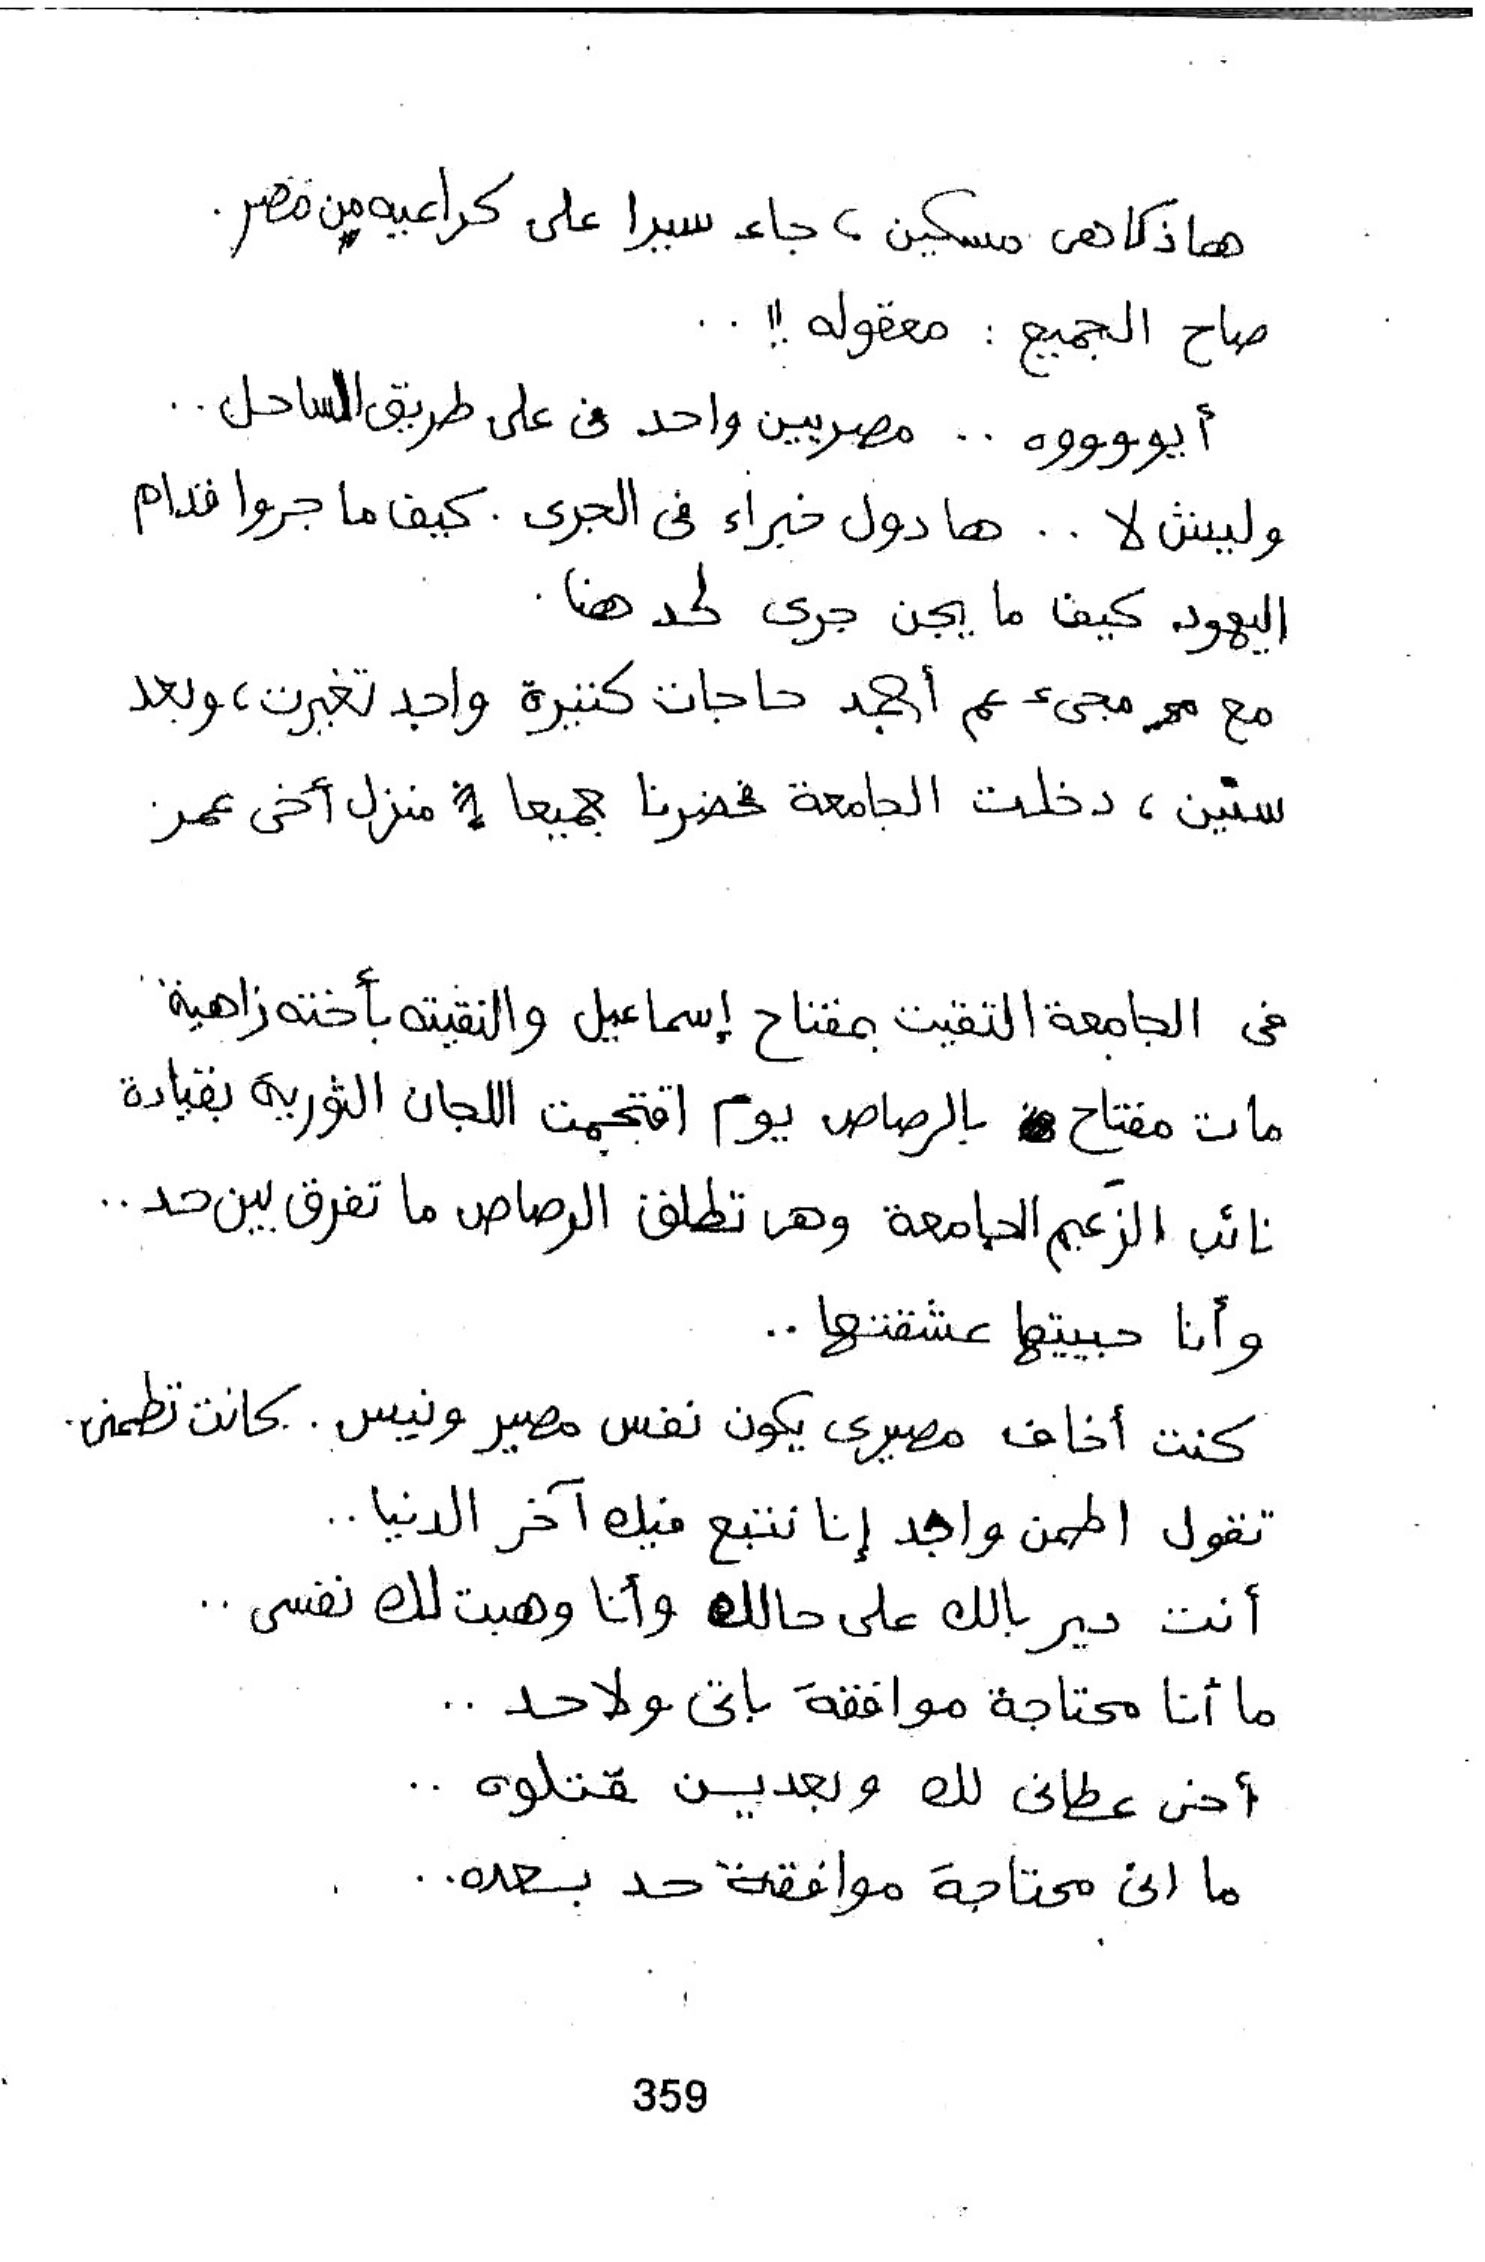 هاذكاهى مسكين ، جاء سيرا على كراعيه من مصر .
صاح الجميع : معقوله !! ..
أيوووووه .. مصريين واحد فى على طريق الساحل ..
وليش لا .. هادول خبراء فى الجرى . كيف ما جروا قدام
اليهود كيف ما يجن جرى لحد هنا .
مع مجىء عم أحمد حاجات كثيرة واجد تغيرت ، وبعد
سنتين ، دخلت الجامعة فحضرنا جميعا فى منزل أخى عمر .
فى الجامعة التقيت بمفتاح إسماعيل والتقيته بأخته زاهية
مات مفتاح بالرصاص يوم اقتحمت اللجان الثورية بقيادة
نائب الزعيم الجامعة وهى تطلق الرصاص ما تفرق بين حد ..
وأنا حبيتها عشقتها ..
كنت أخاف مصيرى يكون نفس مصير ونيس . كانت تطمنى .
تقول اطمن واجد إنا نتبع فيك آخر الدنيا ..
أنت دير بالك على حالك وأنا وهبت لك نفسى ..
ما أنا محتاجة موافقة باتى ولا حد ..
أخى عطانى لك وبعديـن قتلوه ..
ما انى محتاجة موافقة حد بعده ..
359